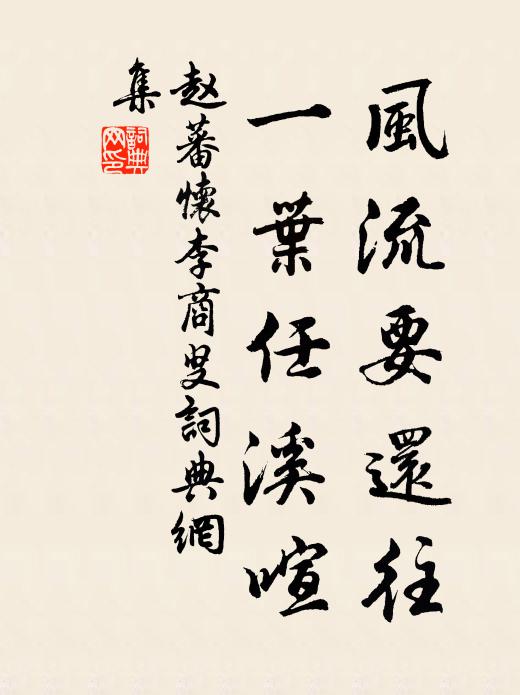 風流要還往
一葉任溪喧
赵蕃懷李商叟詞典網
集
詞典網印